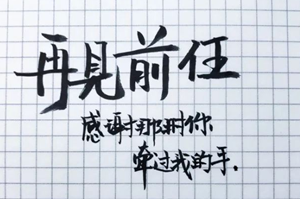 再见前任
感谢那时你
牵过我的手.